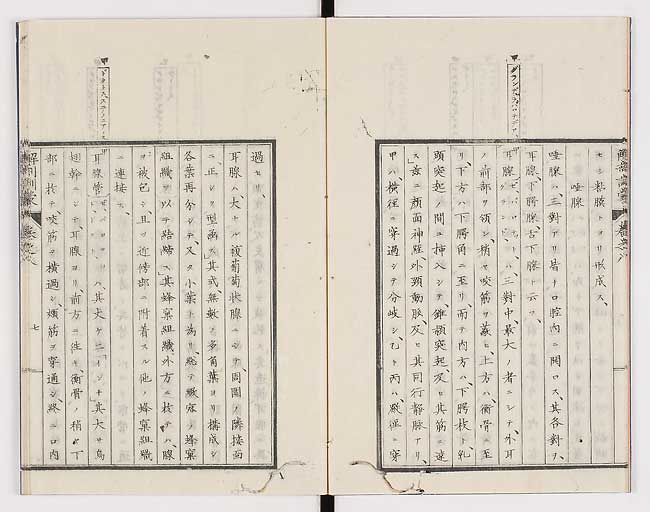 モシ粘膜トヨリ形成ス、
唾腺
唾腺ハ三對アリ皆ナ口腔内ニ開口ス、其各對ヲ、
耳腺下腭腺舌下腺ト云フ、
耳腺 ハ三對中最大ノ者ニシテ、外耳
ノ前部ヲ領シ、稍々咬筋ヲ蔽ヒ、上方ハ衡骨ニ至
リ、下方ハ下腭角ニ至リ、而テ内方ハ、下腭枝ト乳
頭突起ノ間ニ挿入シテ、錐狀突起及ヒ其筋ニ達
ス、茲ニ顔面神經、外頚動脈及ヒ其同行靜脈アリ、
甲ハ、横徑ニ穿過シテ分岐シ、乙ト丙ハ縱徑ニ穿
過セリ、
耳腺ハ、大ナル複葡萄狀腺ニシテ、周圍ノ隣接面
ニ正シク型函ス、其或無數ノ多角葉ヨリ構成シ
各葉再分シテ、又タ小葉ト為リ、總テ緻密ノ蜂窠
組織ヲ以テ結締ス、其蜂窠組織外方ニ於テハ、腺
ヲ被包シ、且ツ近傍部ニ附着スル他ノ蜂窠組織
ニ連接ス、
耳腺管 ハ、其大ケ二「インチ」其大サ烏
翅幹ニシテ耳腺ヨリ前方ニ進キ衡骨ノ稍ヤ下
部ニ於テ咬筋ヲ横過シ、頬筋ヲ穿通シ、終ニ口内
七